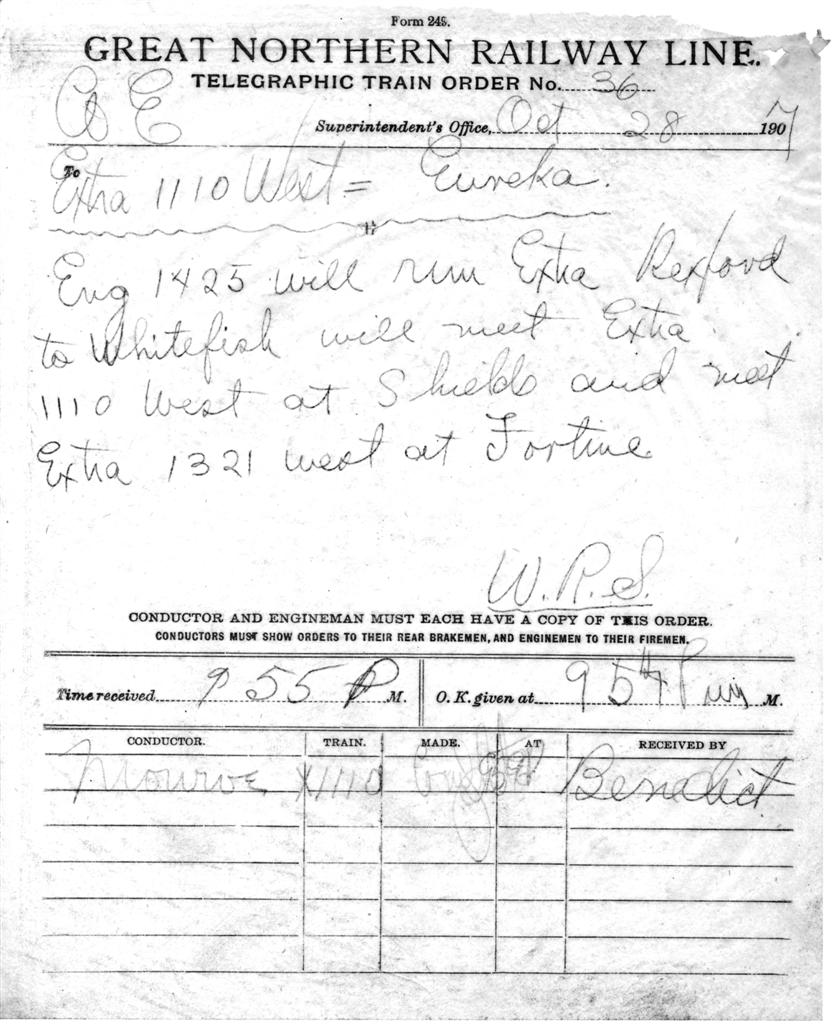 Form 249.
GREAT NORTHERN RAILWAY LINE.
TELEGRAPHIC TRAIN ORDER No. 36
Superintendent's Office, Oct 28 1907
To Extra 1110 West = Eureka.
Eng 1425 will run Extra Rexford
to Whitefish will meet Extra
1110 West at Shields and meet
Extra 1321 west at Fortine
W.R.S.
CONDUCTOR AND ENGINEMAN MUST EACH HAVE A COPY OF THIS ORDER.
CONDUCTORS MUST SHOW ORDERS TO THEIR REAR BRAKEMEN, AND ENGINEMEN TO THEIR FIREMEN.
Time received 9 55 P M. O. K. given at 9 54 P M.
CONDUCTOR. TRAIN. MADE. AT RECEIVED BY
Monroe X1110 Benedict